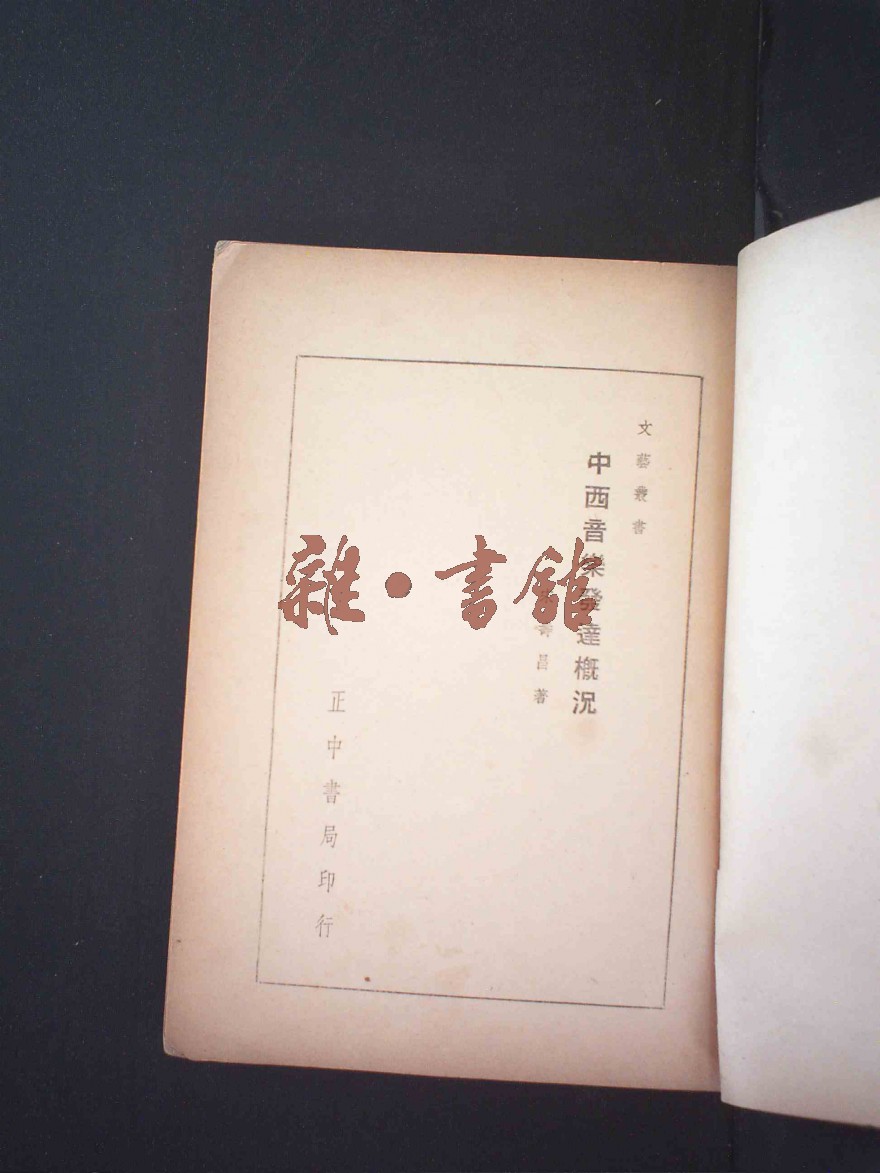 文藝叢書
中西音樂發達概況
壽昌著
正中書局印行
雜·書館